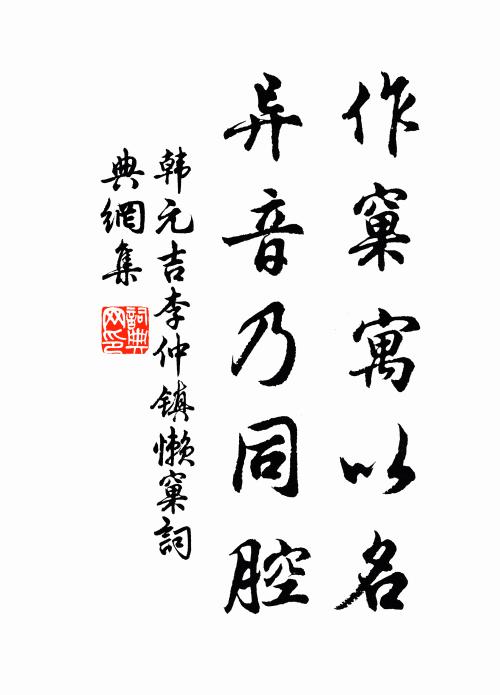 作窠寓以名
异音乃同腔
韩元吉李仲镇懒窠詞
典網集
詞典网印